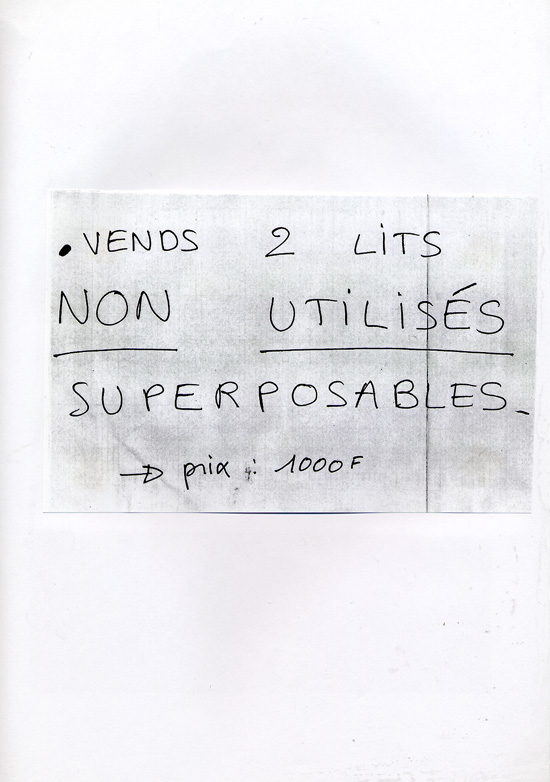 • VENDS 2 LiTS
NON UTiLiSÉS
SUPERPOSABLES_
→ prix : 1000F